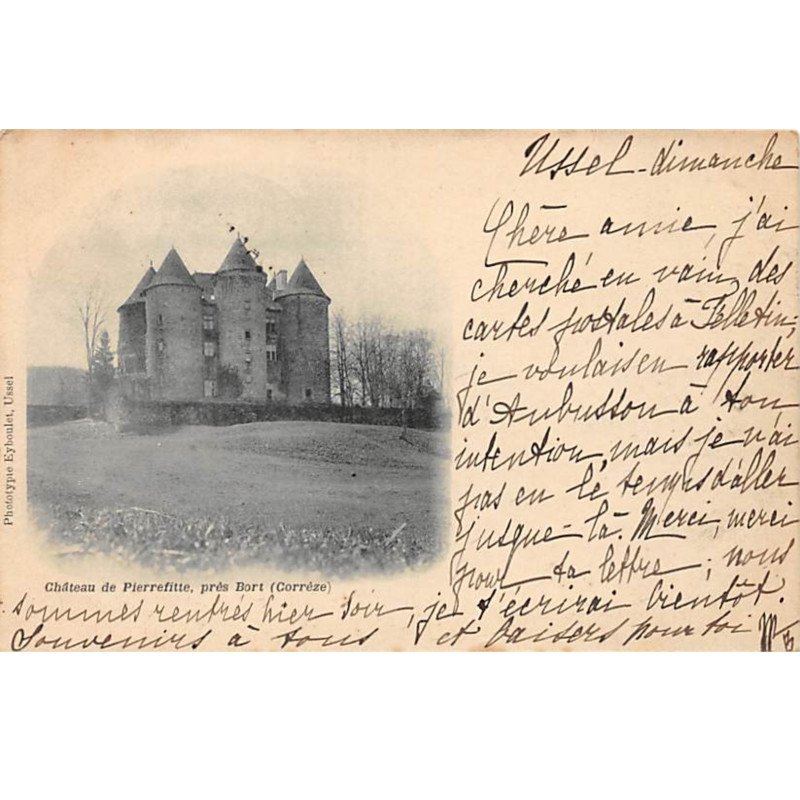 Ussel - dimanche
Chère amie, j'ai
cherché en vain, des
cartes postales à Felletin;
je voulais en rapporter
d'Aubusson à ton
intention, mais je n'ai
pas eu le temps d'aller
jusque-là. Merci, merci
pour ta lettre; nous
Phototypie Eyboulet, Ussel
Château de Pierrefitte, près Bort (Corrèze)
sommes rentrés hier soir, je t'écrirai bientôt.
Souvenirs à tous et baisers pour toi